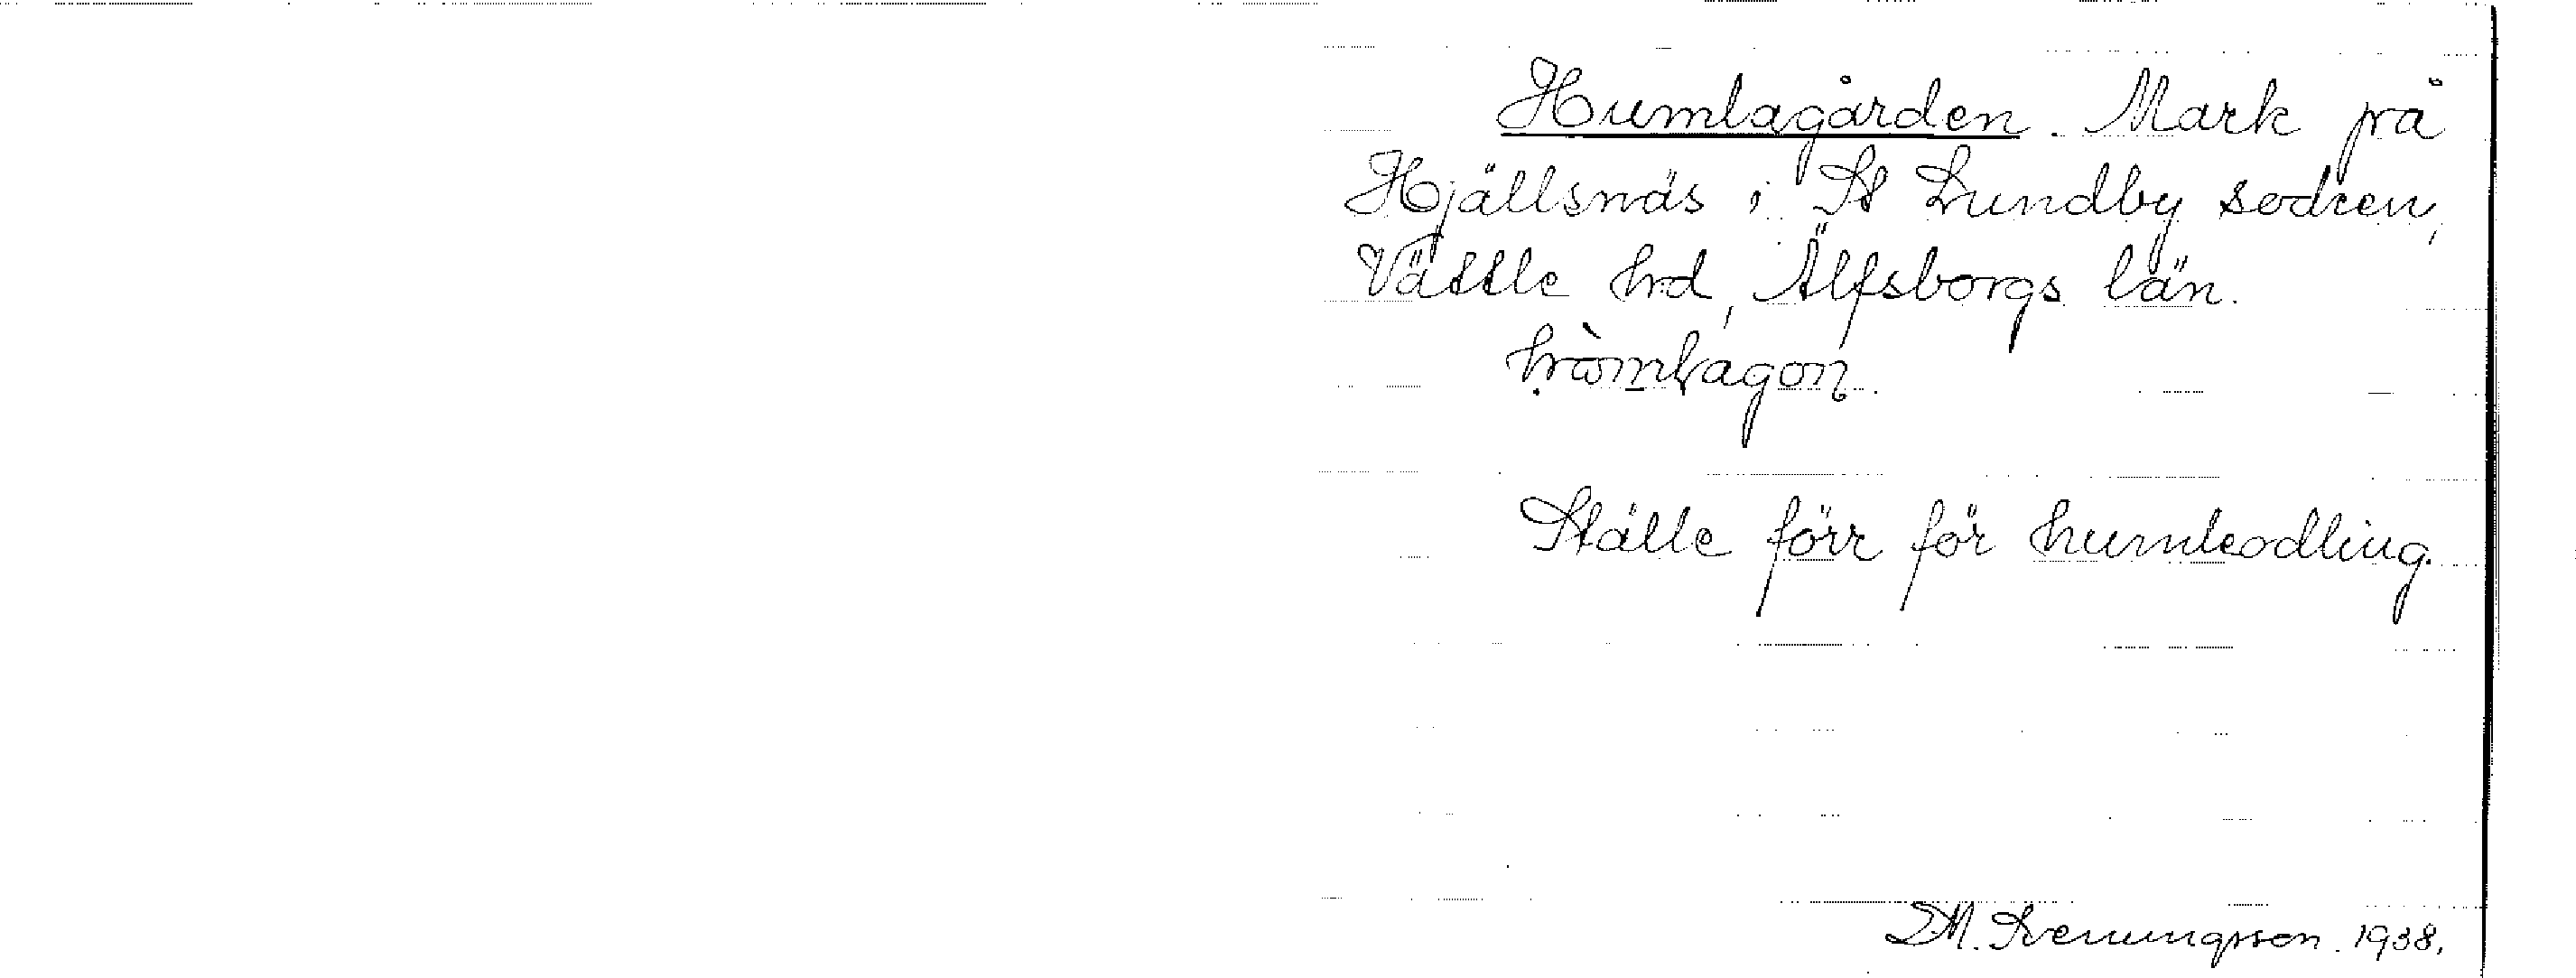 Humlagården. Mark på
Hjällsnäs i St Lundby socken,
Vättle hd, Älfsborgs län.
hòmlagon.
Ställe förr för humleodling.
D.M. Svenungsson. 1938.